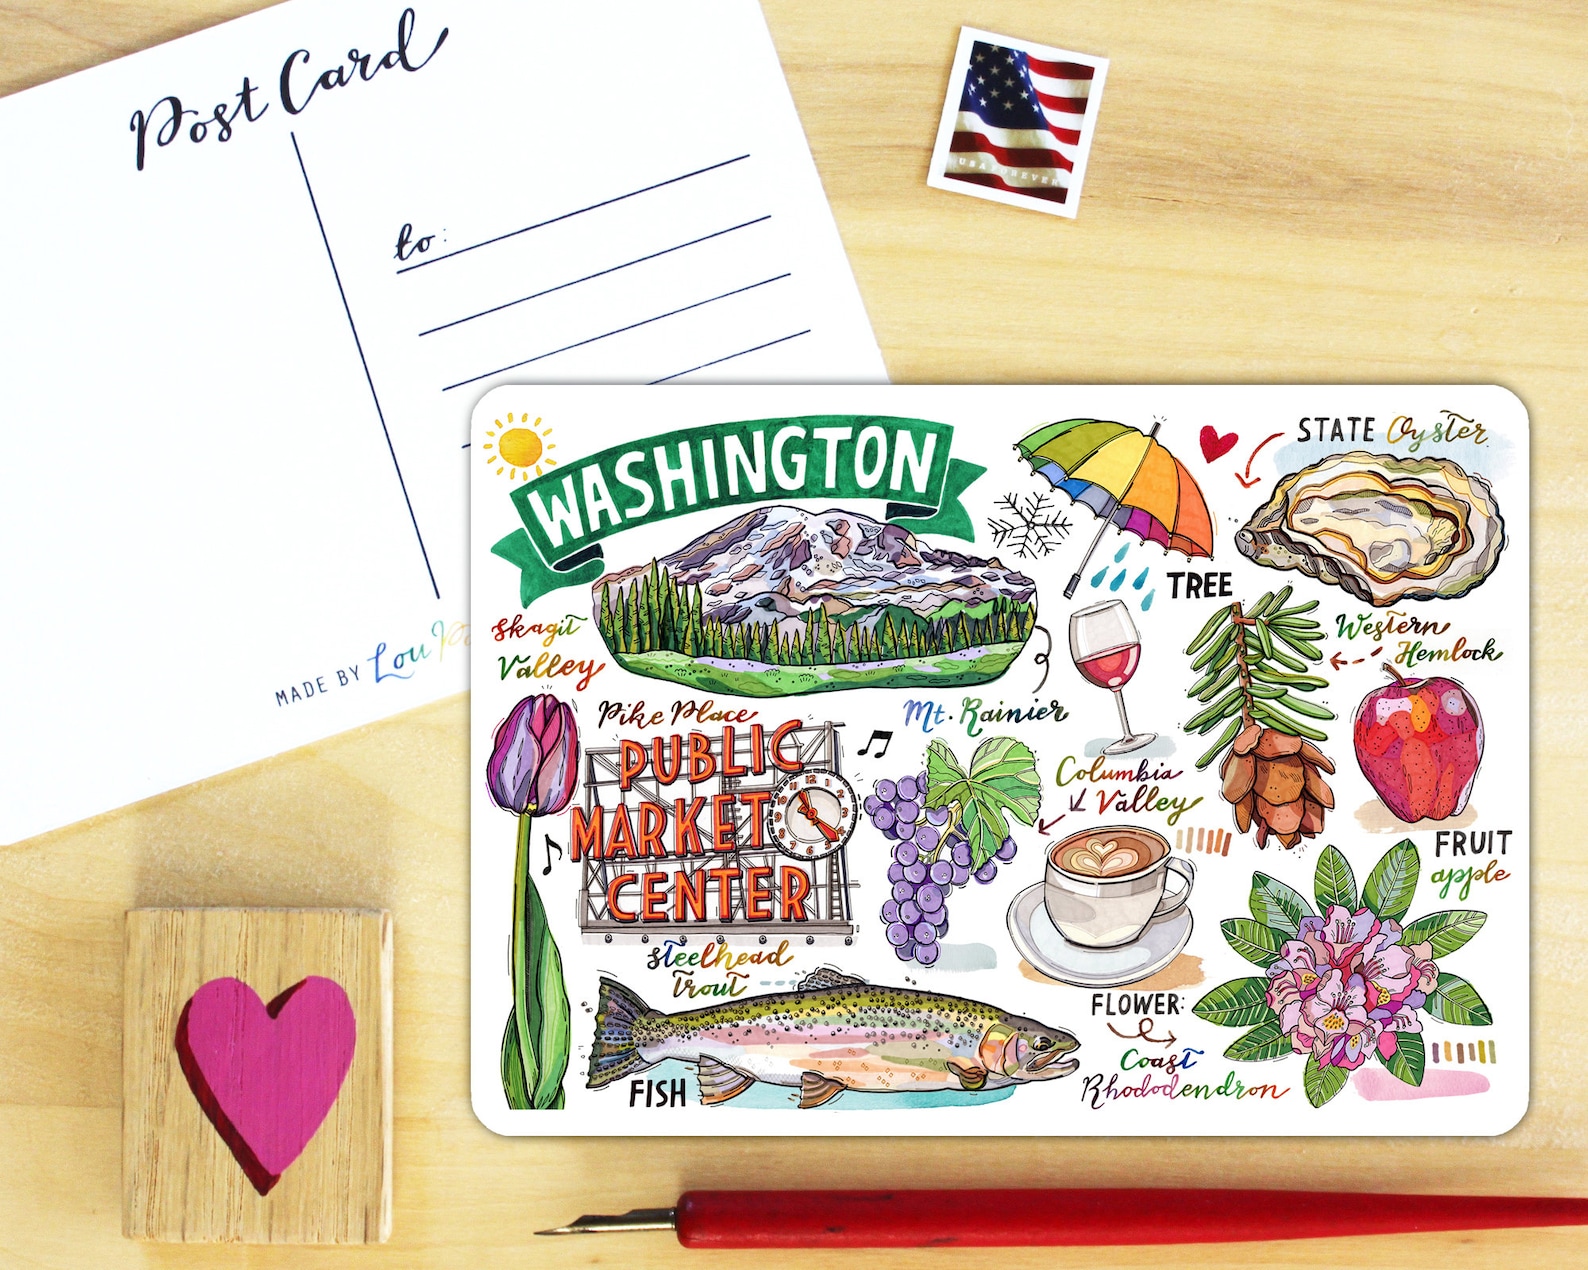 Post Card
to:
MADE BY Lou
USA FOREVER
WASHINGTON
STATE Oyster
TREE
Western
Hemlock
Skagit
Valley
Mt. Rainier
Pike Place
PUBLIC
MARKET
CENTER
Columbia
Valley
FRUIT
apple
Steelhead
Trout
FISH
FLOWER:
Coast
Rhododendron